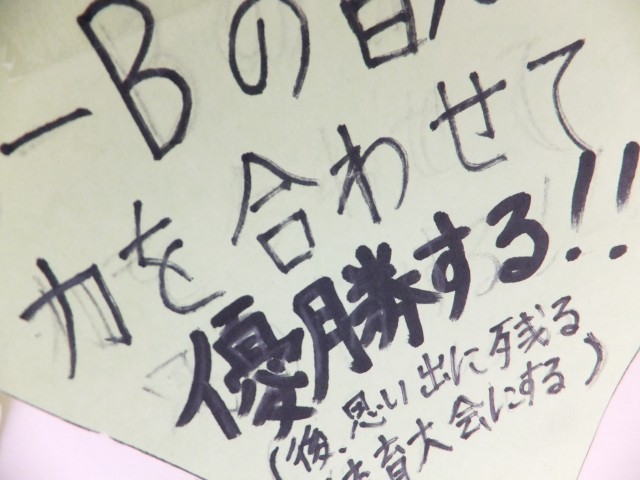 一Bの
力を合わせて
優勝する!!
(後、思い出に残る
体育大会にする)